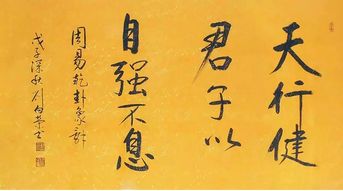 天行健
君子以
自强不息
周易乾卦象辞
戊子深秋